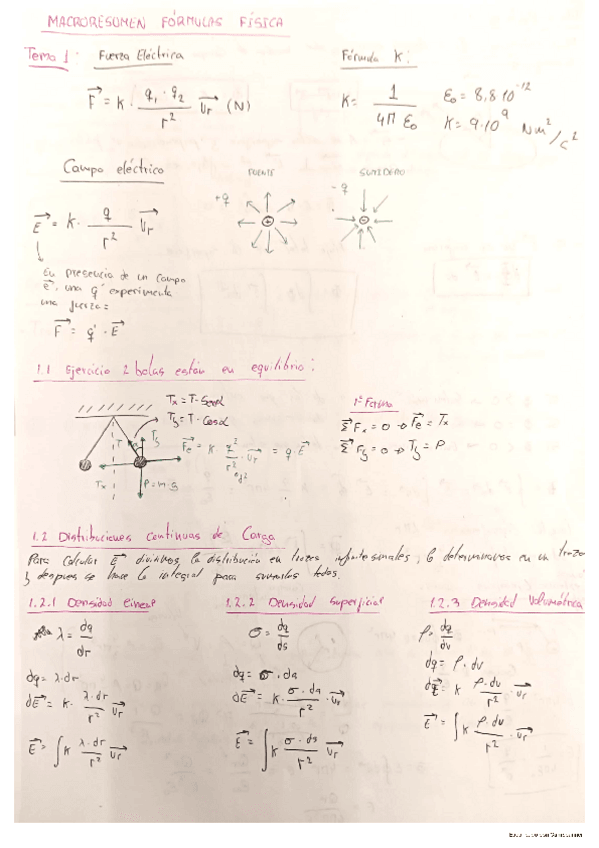 MACRORESUMEN FÓRMULAS FÍSICA
Tema 1: Fuerza Eléctrica
Fórmula K:
F = K · q₁ · q₂ / r² Ur (N)
K = 1 / 4π ε₀
ε₀ = 8,8 10⁻¹²
K = 9·10⁹ Nm²/c²
Campo eléctrico
FUENTE
SUMIDERO
+q
-q
E = K · q / r² Ur
En presencia de un campo
E, una q' experimenta
una fuerza:
F = q' · E
1.1 Ejercicio 2 bolas están en equilibrio:
Tx = T · Senα
Ty = T · Cosα
T
α
Ty
Fe = K · q² / r² · Ur = q · E
Tx
P = m·g
1ª Forma
Σ Fx = 0 → Fe = Tx
Σ Fy = 0 → Ty = P
1.2 Distribuciones continuas de Carga
Para calcular E dividimos la distribución en trozos infinitesimales, lo determinamos en un trozo
y despues se hace la integral para sumarlos todos.
1.2.1 Densidad lineal
λ = dq / dr
dq = λ · dr
dE = K · λ · dr / r² Ur
E = ∫ K λ · dr / r² Ur
1.2.2 Densidad superficial
σ = dq / ds
dq = σ · da
dE = K · σ · da / r² · Ur
E = ∫ K σ · ds / r² · Ur
1.2.3 Densidad Volumétrica
ρ = dq / dv
dq = ρ · dv
dE = K ρ · dv / r² · Ur
E = ∫ K ρ · dv / r² · Ur